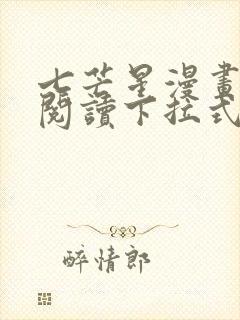 七芒星漫畫
閱讀下拉式
醉情郎